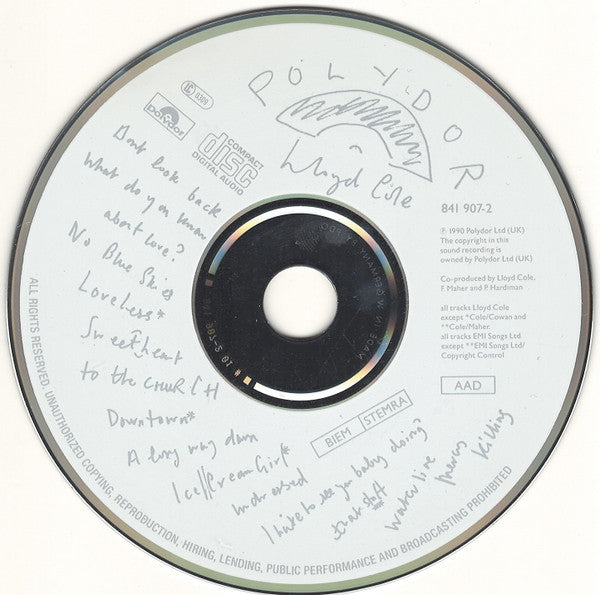 POLYDOR
Lloyd Cole
LC 0309
Polydor
COMPACT
disc
DIGITAL AUDIO
Dont look back
What do you know
about love?
No Blue Skies
Loveless*
Sweetheart
to the CHURCH
Downtown*
A long way down
Ice Cream Girl*
Undressed
I hate to see you baby doing
that stuff
*
Waterline
Mercy
Killing
841 907-2
℗ 1990 Polydor Ltd (UK)
The copyright in this
sound recording is
owned by Polydor Ltd (UK)
Co-produced by Lloyd Cole,
F. Maher and P. Hardiman
all tracks Lloyd Cole
except *Cole/Cowan and
**Cole/Maher.
all tracks EMI Songs Ltd
except **EMI Songs Ltd/
Copyright Control
AAD
BIEM STEMRA
MADE IN W. GERMANY BY PDO
ALL RIGHTS RESERVED. UNAUTHORIZED COPYING, REPRODUCTION, HIRING, LENDING, PUBLIC PERFORMANCE AND BROADCASTING PROHIBITED